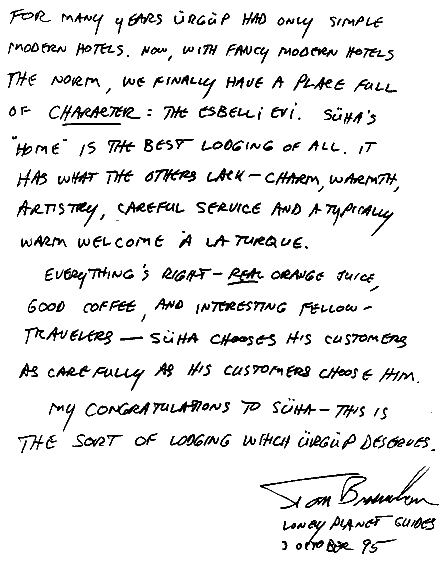 FOR MANY YEARS ÜRGÜP HAD ONLY SIMPLE
MODERN HOTELS. NOW, WITH FANCY MODERN HOTELS
THE NORM, WE FINALLY HAVE A PLACE FULL
OF CHARACTER: THE ESBELLI EVI. SÜHA'S
"HOME" IS THE BEST LODGING OF ALL. IT
HAS WHAT THE OTHERS LACK – CHARM, WARMTH,
ARTISTRY, CAREFUL SERVICE AND A TYPICALLY
WARM WELCOME À LA TURQUE.
EVERYTHING'S RIGHT – REAL ORANGE JUICE,
GOOD COFFEE, AND INTERESTING FELLOW-
TRAVELERS — SÜHA CHOOSES HIS CUSTOMERS
AS CAREFULLY AS HIS CUSTOMERS CHOOSE HIM.
MY CONGRATULATIONS TO SÜHA – THIS IS
THE SORT OF LODGING WHICH ÜRGÜP DESERVES.
Tom Brosnahan
LONELY PLANET GUIDES
3 OCTOBER 95